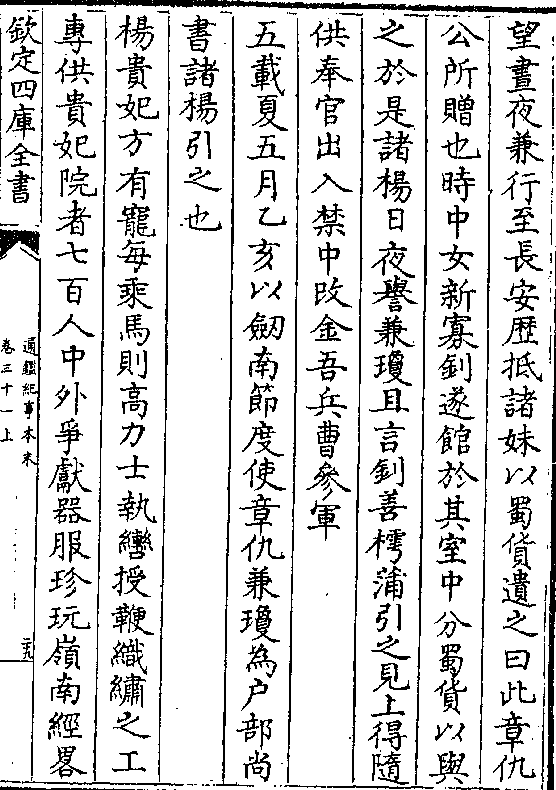 望晝夜兼行至長安歴抵諸妹以蜀貨遺之曰此章仇
公所贈也時中女新寡釗遂館於其室中分蜀貨以與
之於是諸楊日夜譽兼瓊且言釗善樗蒲引之見上得隨
供奉官出入禁中改金吾兵曹參軍
五載夏五月乙亥以劔南節度使章仇兼瓊為户部尚
書諸楊引之也
楊貴妃方有寵每乘馬則高力士執轡授鞭織繡之工
專供貴妃院者七百人中外爭獻器服珍玩嶺南經畧
欽定四庫全書
通鑑紀事本末
卷三十一上
二九